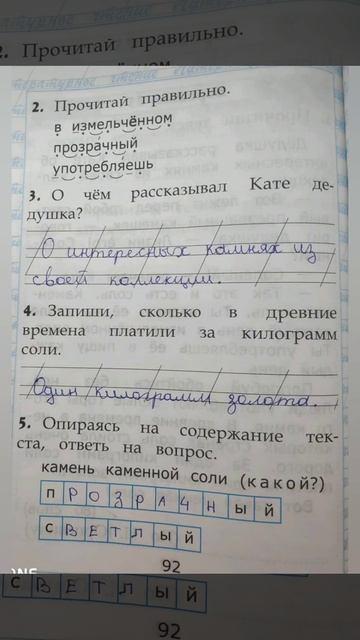 2. Прочитай правильно.
2. Прочитай правильно.
в измельчённом
прозрачный
употребляешь
3. О чём рассказывал Кате де-
душка?
О интересных камнях из
своей коллекции.
4. Запиши, сколько в древние
времена платили за килограмм
соли.
Один килограмм золота.
5. Опираясь на содержание тек-
ста, ответь на вопрос.
камень каменной соли (какой?)
прозрачный
светлый
92
светлый
92